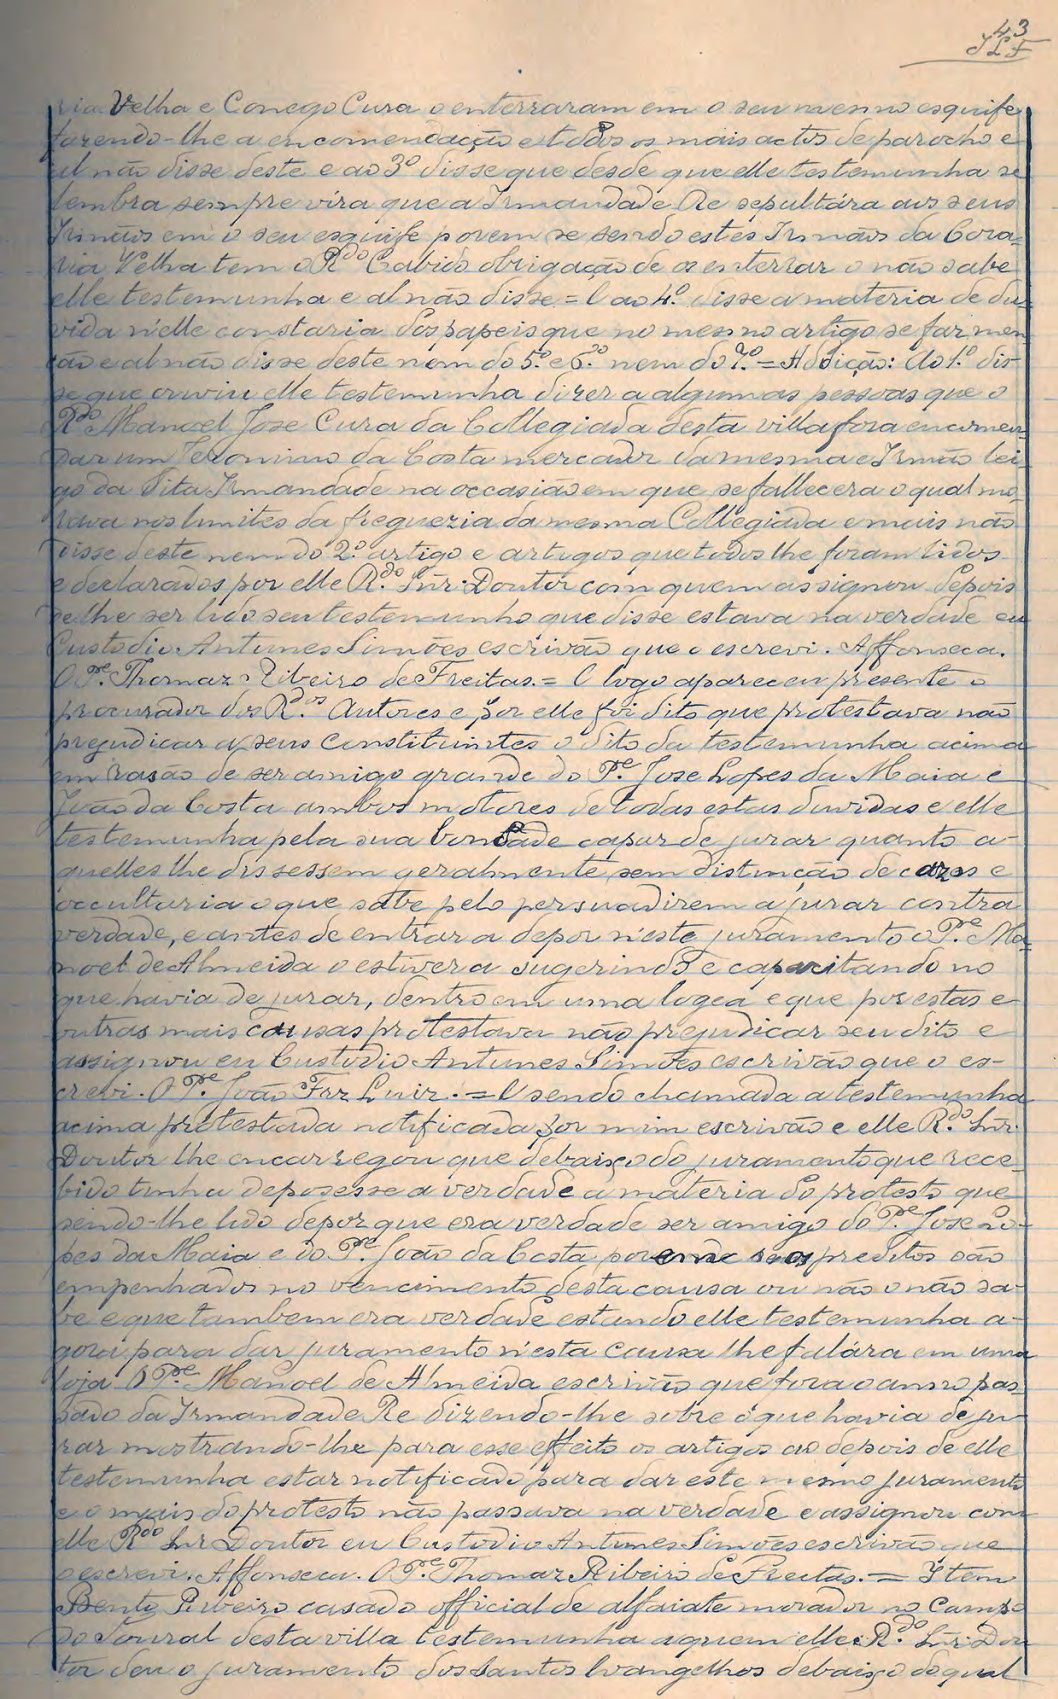 43
ria Velha e Conego Cura o enterraram em o seu mesmo esquife
fazendo-lhe a encomendação e todos os mais actos de parocho e
al não disse deste e ao 3º disse que desde que elle testemunha se
lembra sempre vira que a Irmandade Re sepultára aos seus
Irmãos em o seu esquife porem se sendo estes Irmãos da Cora-
ria Velha tem o Rdo Cabido obrigação de os enterrar o não sabe
elle testemunha e al não disse = E ao 4º disse a materia de du-
vida n'elle constaria dos papeis que no mesmo artigo se faz men-
ção e al não disse deste nem do 5º e 6º nem do 7º = Adição: Ao 1º dis-
se que ouviu elle testemunha dizer a algumas pessoas que o
Rdo Manoel Jose Cura da Collegiada desta villa fora encomen-
dar um Jeronimo da Costa mercador da mesma e Irmão lei-
go da dita Irmandade na occasião em que se fallecera o qual mo-
rava nos limites da freguezia da mesma Collegiada e mais não
disse deste nem do 2º artigo e artigos que todos lhe foram lidos
e declarados por elle Rdo Snr. Doutor com quem assignou depois
de lhe ser lido seu testemunho que disse estava na verdade eu
Custodio Antunes Simões escrivão que o escrevi. Affonseca.
O Pe. Thomaz Ribeiro de Freitas. = E logo apareceu presente o
procurador dos Rdos Autores e por elle foi dito que protestava não
prejudicar a seus constituintes o dito da testemunha acima
em rasão de ser amigo grande do Pe. Jose Lopes da Maia e
João da Costa ambos motores de todas estas duvidas e elle
testemunha pela sua bondade capaz de jurar quanto a-
quelles lhe dissessem geralmente sem distinção de cazos e
occultaria o que sabe pelo persuadirem a jurar contra
verdade, e antes de entrar a depor n'este juramento o Pe. Ma-
noel de Almeida o estivera sugerindo e capacitando no
que havia de jurar, dentro em uma logea e que por estas e
outras mais causas protestava não prejudicar seu dito e
assignou eu Custodio Antunes Simões escrivão que o es-
crevi. O Pe. João Frz Luiz. = E sendo chamada a testemunha
acima protestada notificada por mim escrivão e elle Rdo Snr.
Doutor lhe encarregou que debaixo do juramento que rece-
bido tinha deposesse a verdade a materia do protesto que
sendo-lhe lido depoz que era verdade ser amigo do Pe. Jose Lo-
pes da Maia e do Pe. João da Costa porem se os preditos são
empenhados no vencimento desta causa ou não o não sa-
be e que tambem era verdade estando elle testemunha a-
gora para dar juramento n'esta causa lhe falára em uma
loja o Pe. Manoel de Almeida escrivão que fora o anno pas-
sado da Irmandade Re dizendo-lhe sobre o que havia de ju-
rar mostrando-lhe para esse effeito os artigos ao depois de elle
testemunha estar notificado para dar este mesmo juramento
e o mais do protesto não passava na verdade e assignou com
elle Rdo Snr Doutor eu Custodio Antunes Simões escrivão que
o escrevi. Affonseca. O Pe. Thomaz Ribeiro de Freitas. = Item
Bento Ribeiro casado official de alfaiate morador no Campo
do Toural desta villa testemunha a quem elle Rdo Snr. Dou-
tor deu o juramento dos Santos Evangelhos debaixo do qual